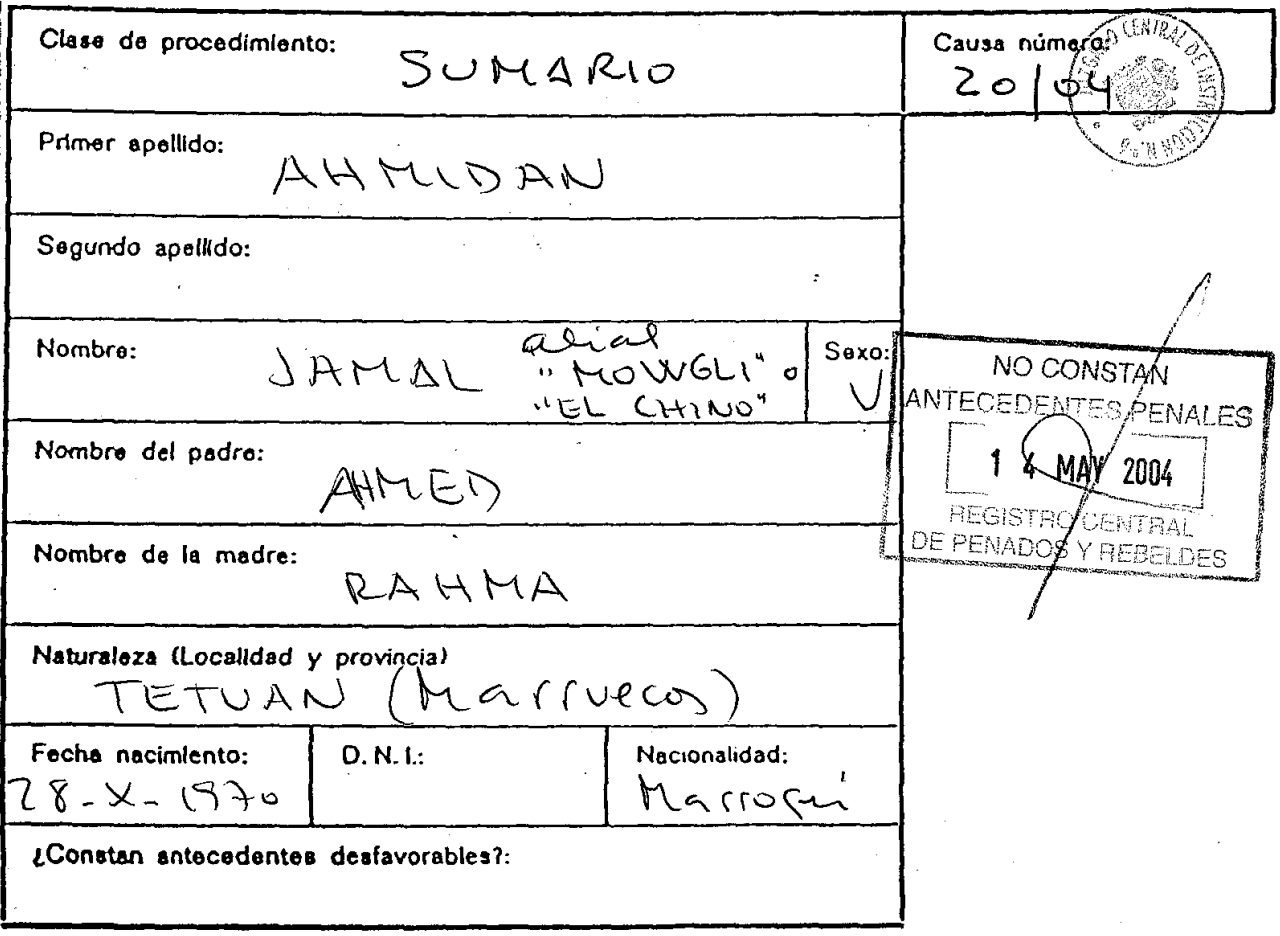 Clase de procedimiento:
SUMARIO
Causa número:
20/04
JUZGADO CENTRAL DE INSTRUCCION N.º 6
Primer apellido:
AHMIDAN
Segundo apellido:
Nombre:
JAMAL
alias
"MOWGLI" o
"EL CHINO"
Sexo:
V
NO CONSTAN
ANTECEDENTES PENALES
14 MAY 2004
REGISTRO CENTRAL
DE PENADOS Y REBELDES
Nombre del padre:
AHMED
Nombre de la madre:
RAHMA
Naturaleza (Localidad y provincia)
TETUAN (Marruecos)
Fecha nacimiento:
28-X-1970
D. N. I.:
Nacionalidad:
Marroquí
¿Constan antecedentes desfavorables?: